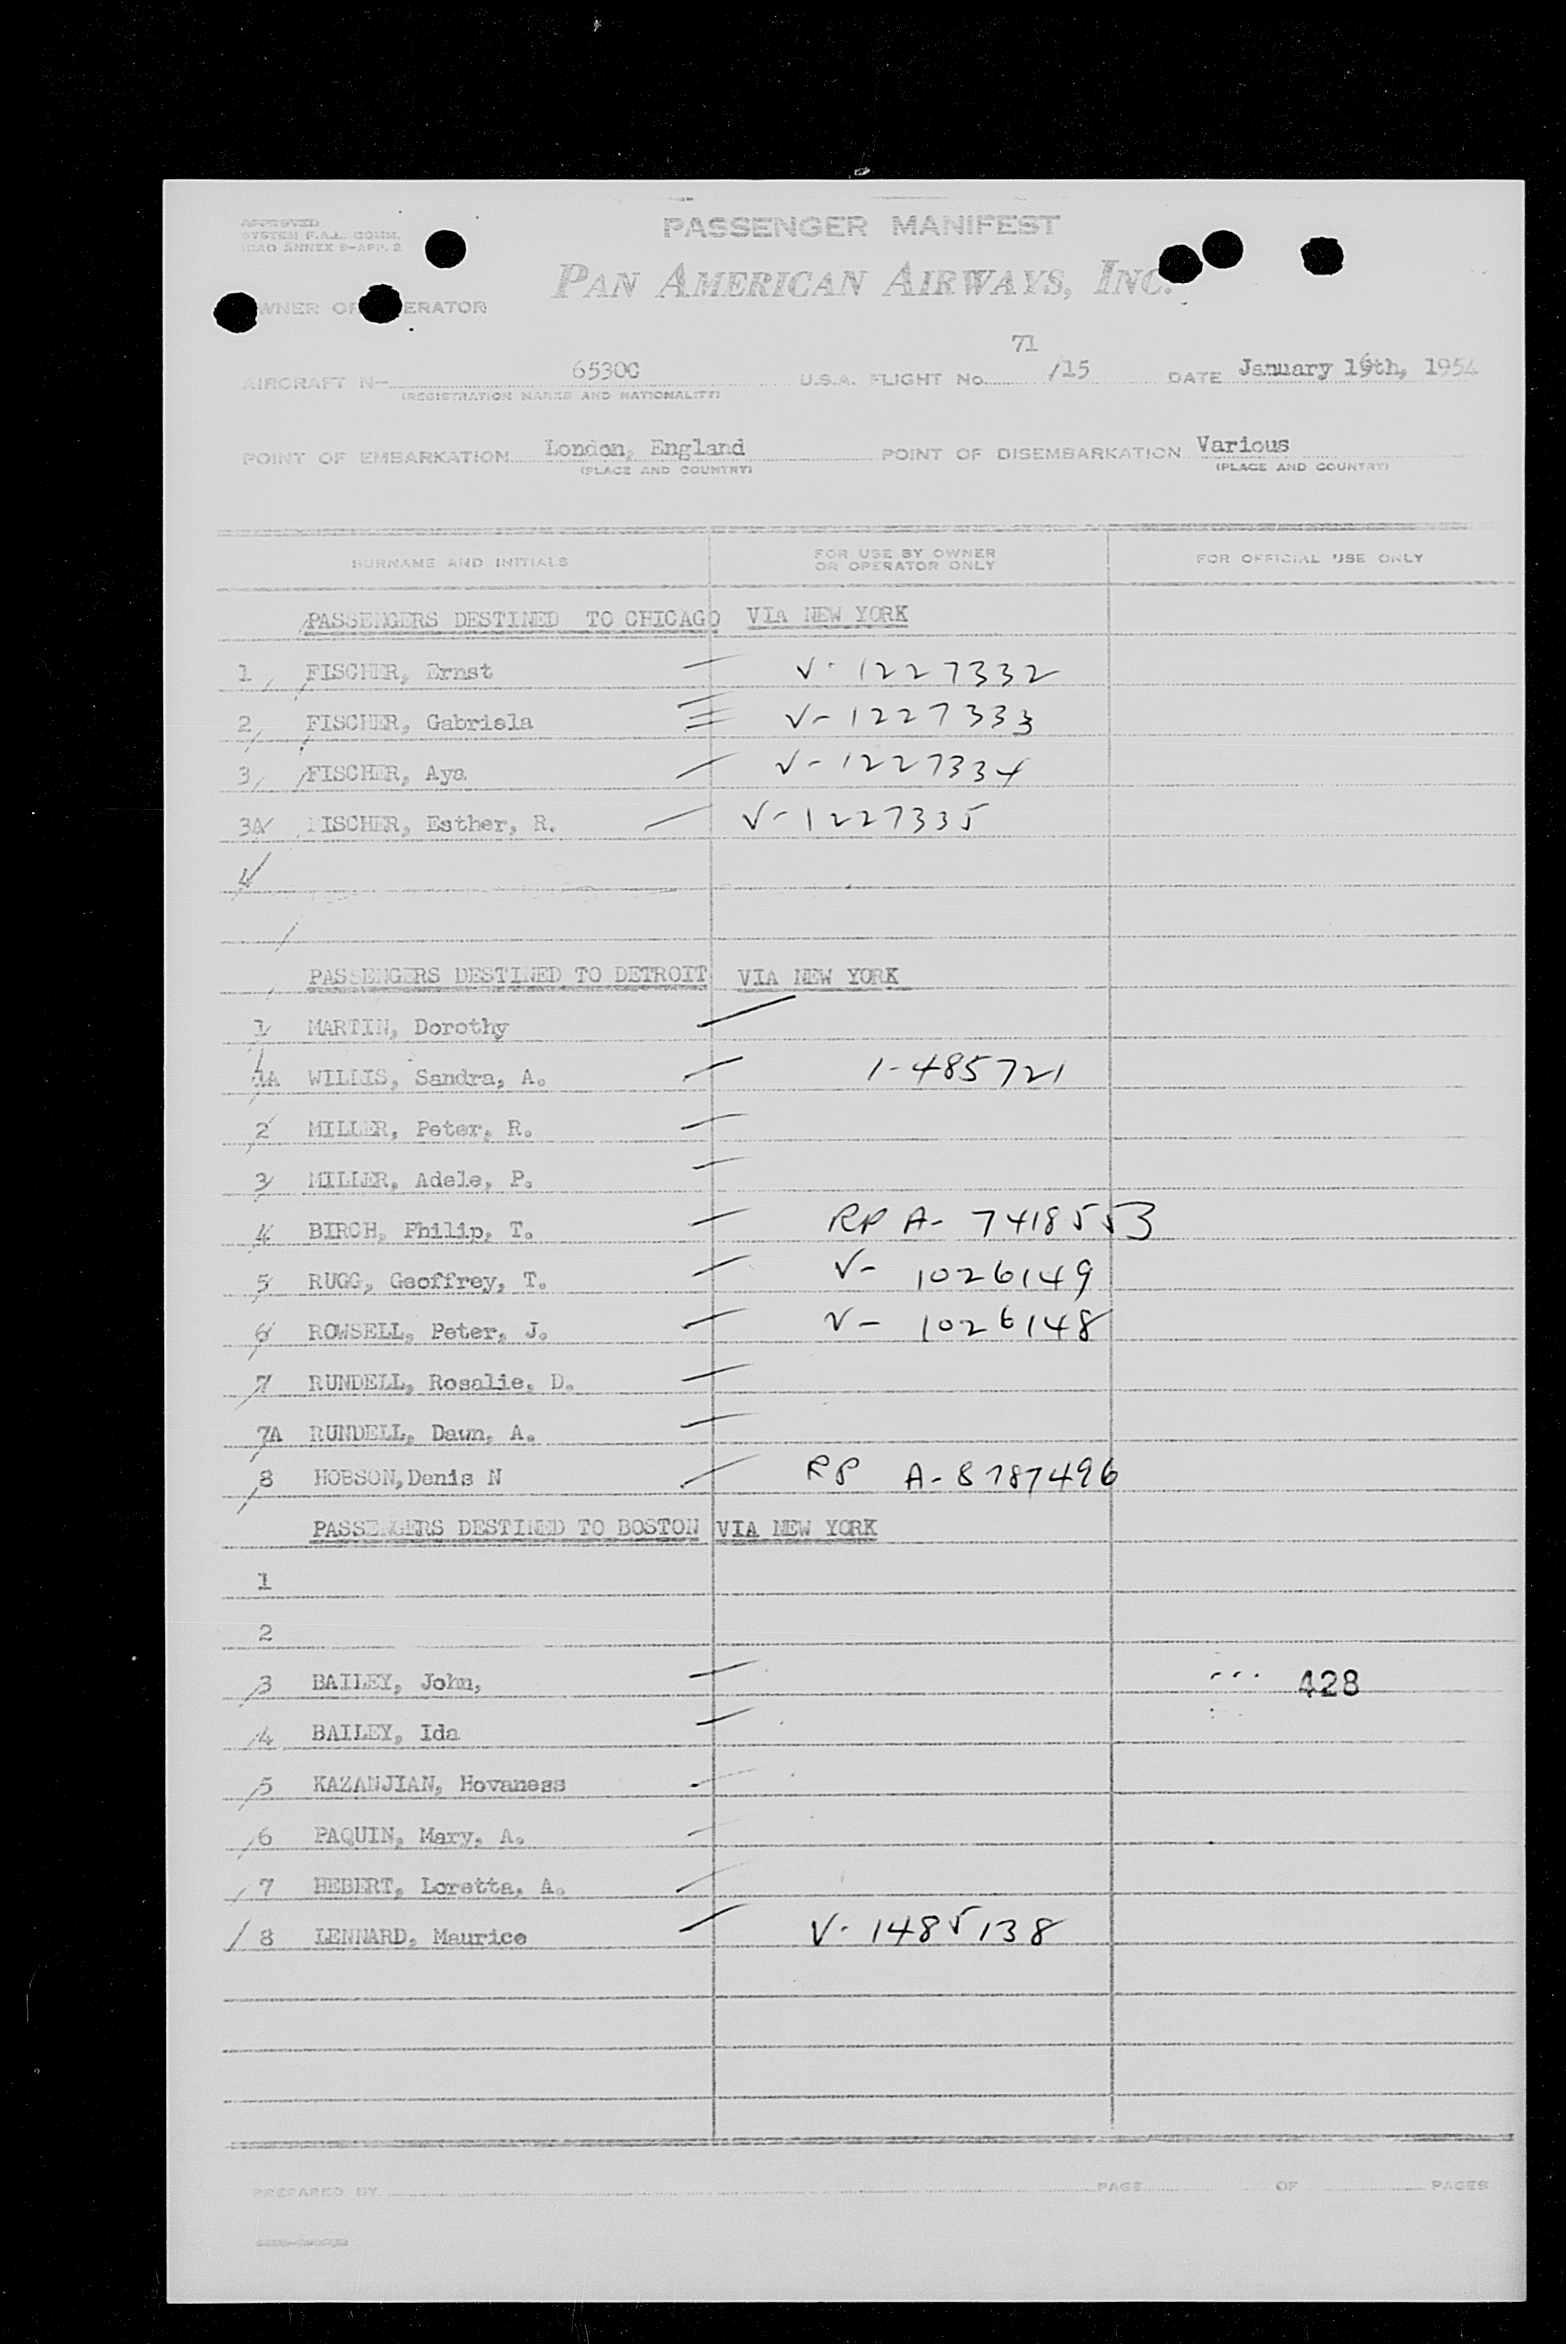 APPROVED
SYSTEM F.A.L. COMM.
ICAO ANNEX 9-APP. 2
PASSENGER MANIFEST
PAN AMERICAN AIRWAYS, INC.
OWNER OR OPERATOR
71
AIRCRAFT N- 6530C U.S.A. FLIGHT No. /15 DATE January 16th, 1954
(REGISTRATION MARKS AND NATIONALITY)
POINT OF EMBARKATION London, England POINT OF DISEMBARKATION Various
(PLACE AND COUNTRY) (PLACE AND COUNTRY)
SURNAME AND INITIALS FOR USE BY OWNER OR OPERATOR ONLY FOR OFFICIAL USE ONLY
PASSENGERS DESTINED TO CHICAGO VIA NEW YORK
1 FISCHER, Ernst V-1227332
2 FISCHER, Gabriela V-1227333
3 FISCHER, Aya V-1227334
3A FISCHER, Esther, R. V-1227335
4
PASSENGERS DESTINED TO DETROIT VIA NEW YORK
1 MARTIN, Dorothy
1A WILLIS, Sandra, A. 1-485721
2 MILLER, Peter, R.
3 MILLER, Adele, P.
4 BIRCH, Philip, T. RP A-7418553
5 RUGG, Geoffrey, T. V-1026149
6 ROWSELL, Peter, J. V-1026148
7 RUNDELL, Rosalie. D.
7A RUNDELL, Dawn, A.
8 HOBSON, Denis N RP A-8787496
PASSENGERS DESTINED TO BOSTON VIA NEW YORK
1
2
3 BAILEY, John, 428
4 BAILEY, Ida
5 KAZANJIAN, Hovaness
6 PAQUIN, Mary, A.
7 HEBERT, Loretta, A.
8 LENNARD, Maurice V-1485138
PREPARED BY PAGE OF PAGES